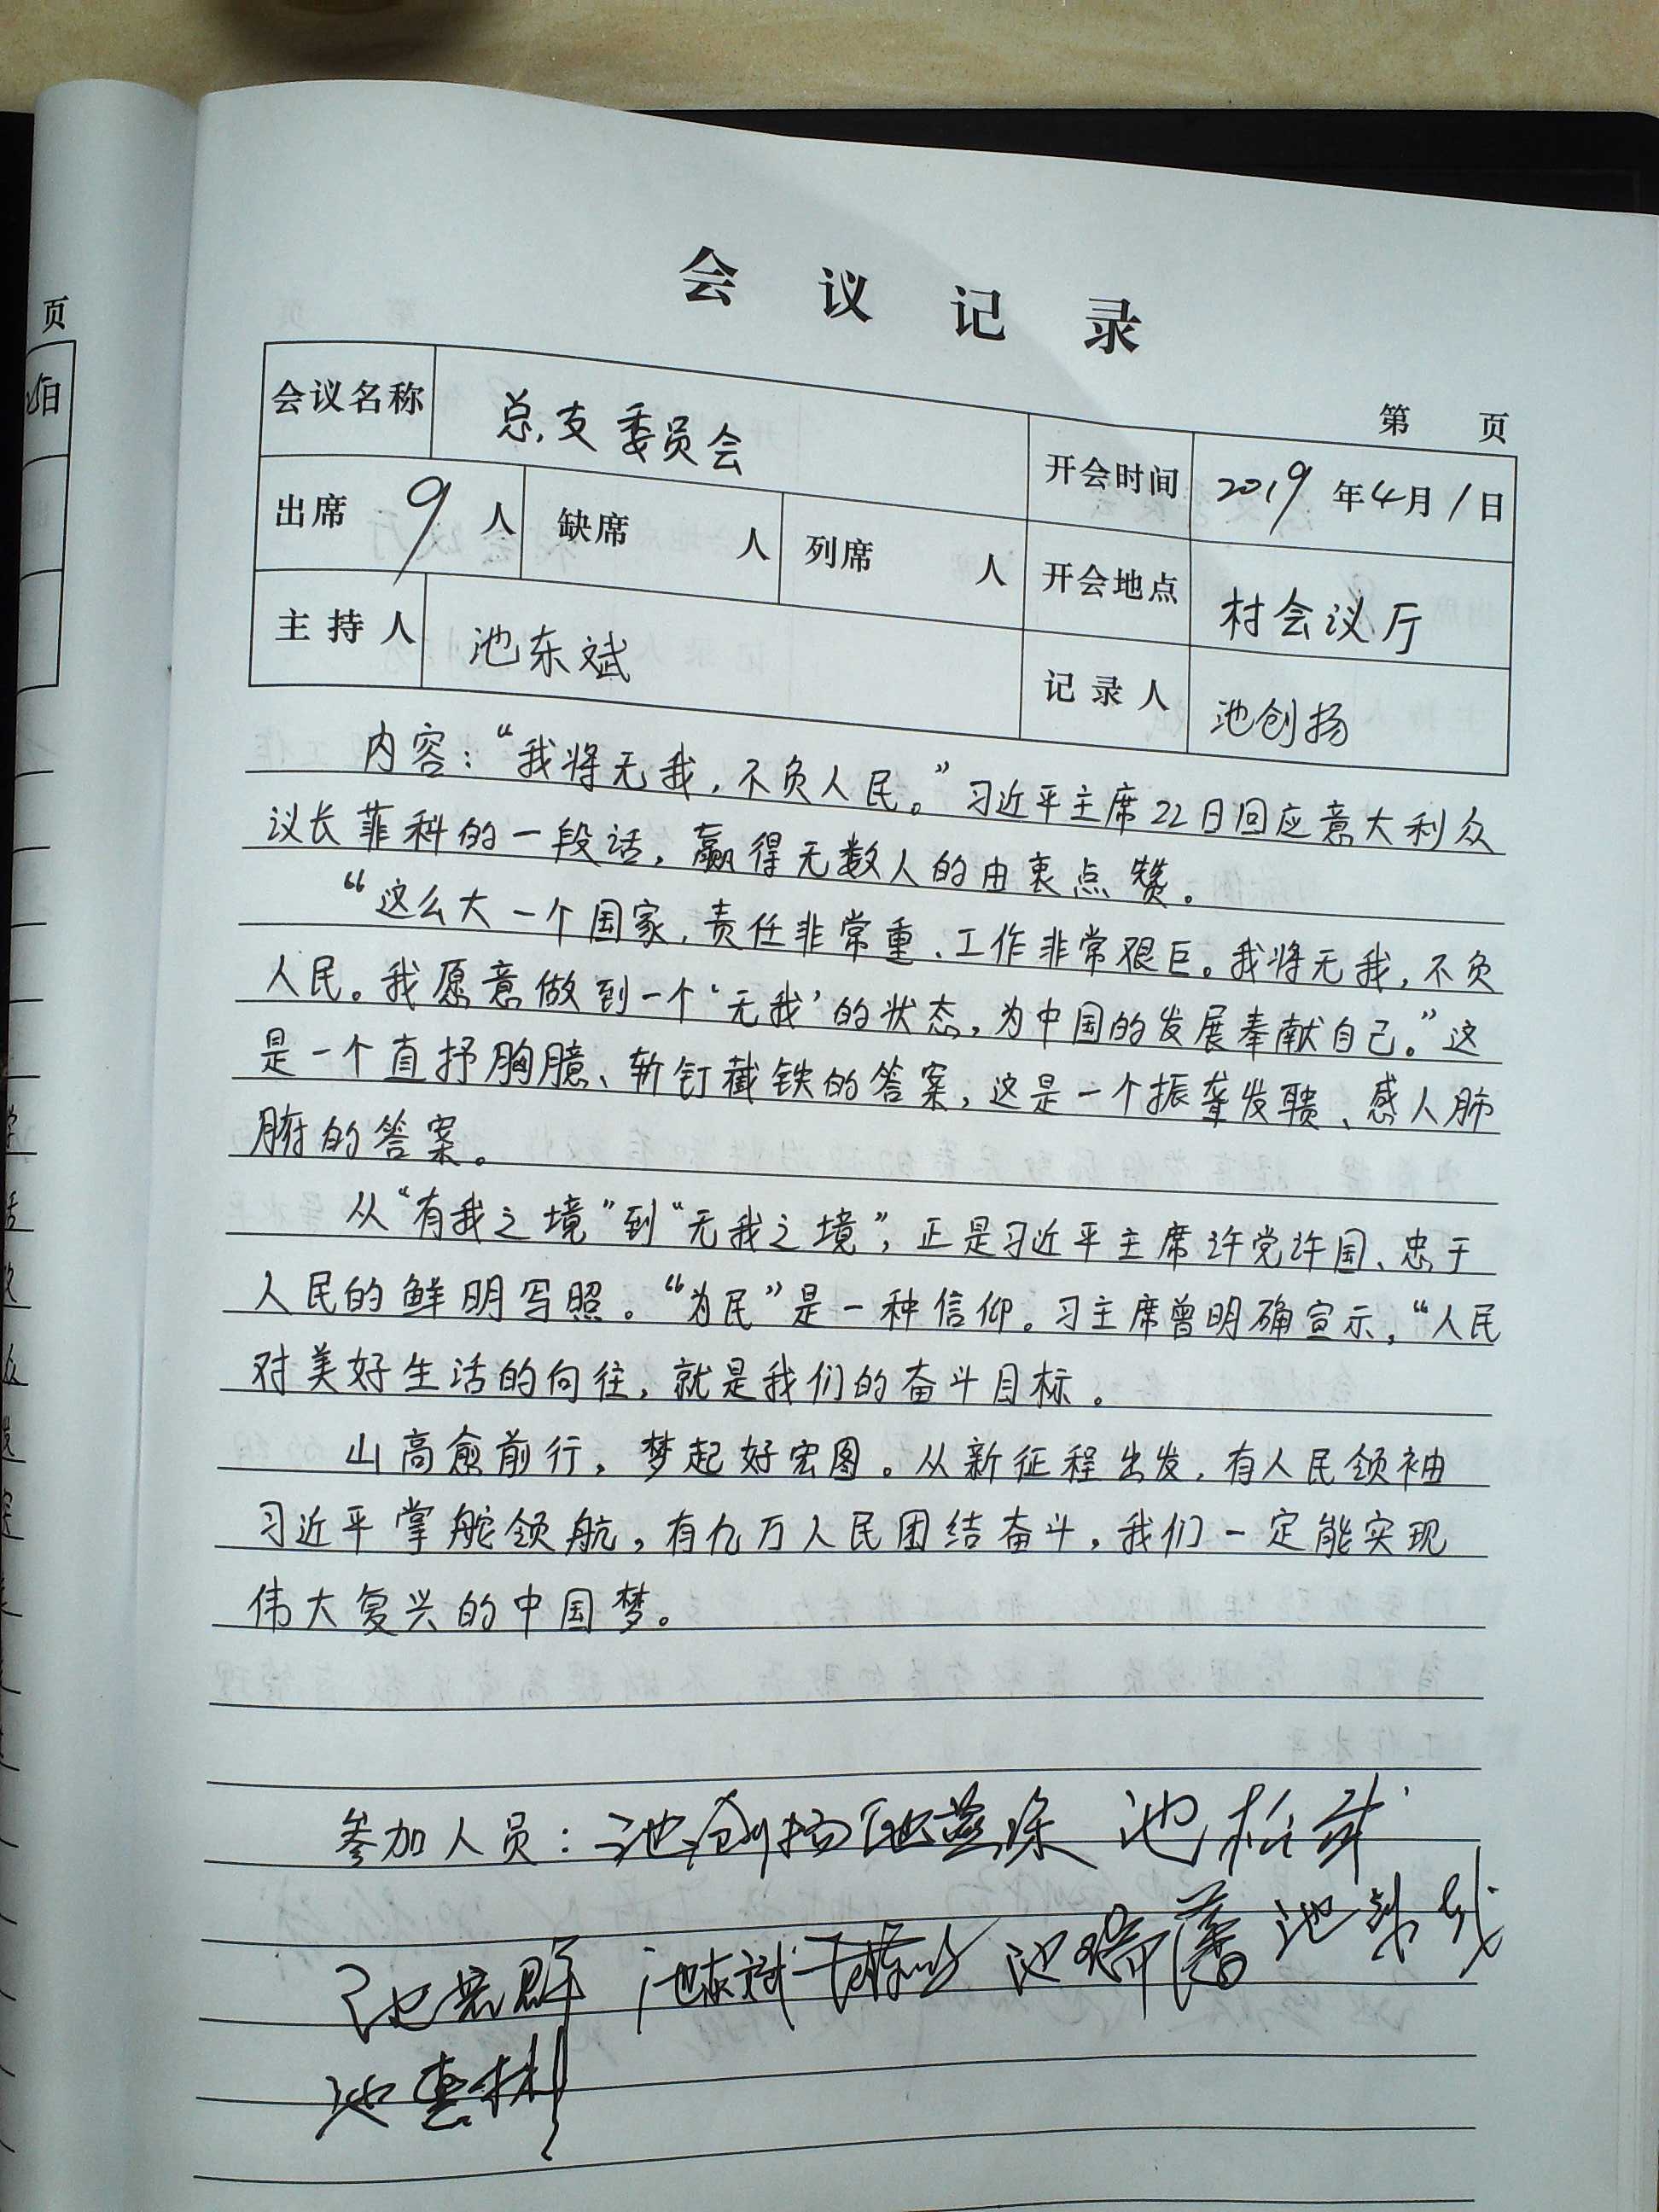 会议记录
第 页
会议名称 总支委员会 开会时间 2019年4月1日
出席 9 人 缺席 人 列席 人 开会地点 村会议厅
主持人 池东斌 记录人 池创扬
内容：“我将无我，不负人民。”习近平主席22日回应意大利众
议长菲科的一段话，赢得无数人的由衷点赞。
“这么大一个国家，责任非常重、工作非常艰巨。我将无我，不负
人民。我愿意做到一个‘无我’的状态，为中国的发展奉献自己。”这
是一个直抒胸臆、斩钉截铁的答案，这是一个振聋发聩、感人肺
腑的答案。
从“有我之境”到“无我之境”，正是习近平主席许党许国、忠于
人民的鲜明写照。“为民”是一种信仰。习主席曾明确宣示，“人民
对美好生活的向往，就是我们的奋斗目标。
山高愈前行，梦起好宏图。从新征程出发，有人民领袖
习近平掌舵领航，有亿万人民团结奋斗，我们一定能实现
伟大复兴的中国梦。
参加人员：池创扬 池
池 池东斌 池瑞藩 池
池
页
日